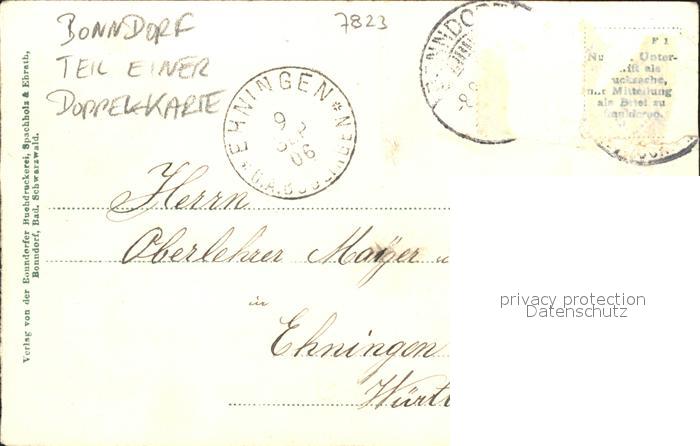 BONNDORF
TEIL EINER
DOPPELKARTE
7823
EHNINGEN
9
06
BONNDORF
F 1
Unter-
als
mit Mitteilung
als Brief zu
Herrn
Oberlehrer Mayer
in
Ehningen
Württ
privacy protection
Datenschutz
Verlag von der Bonndorfer Buchdruckerei, Spachholz & Ehrath,
Bonndorf, Bad. Schwarzwald.